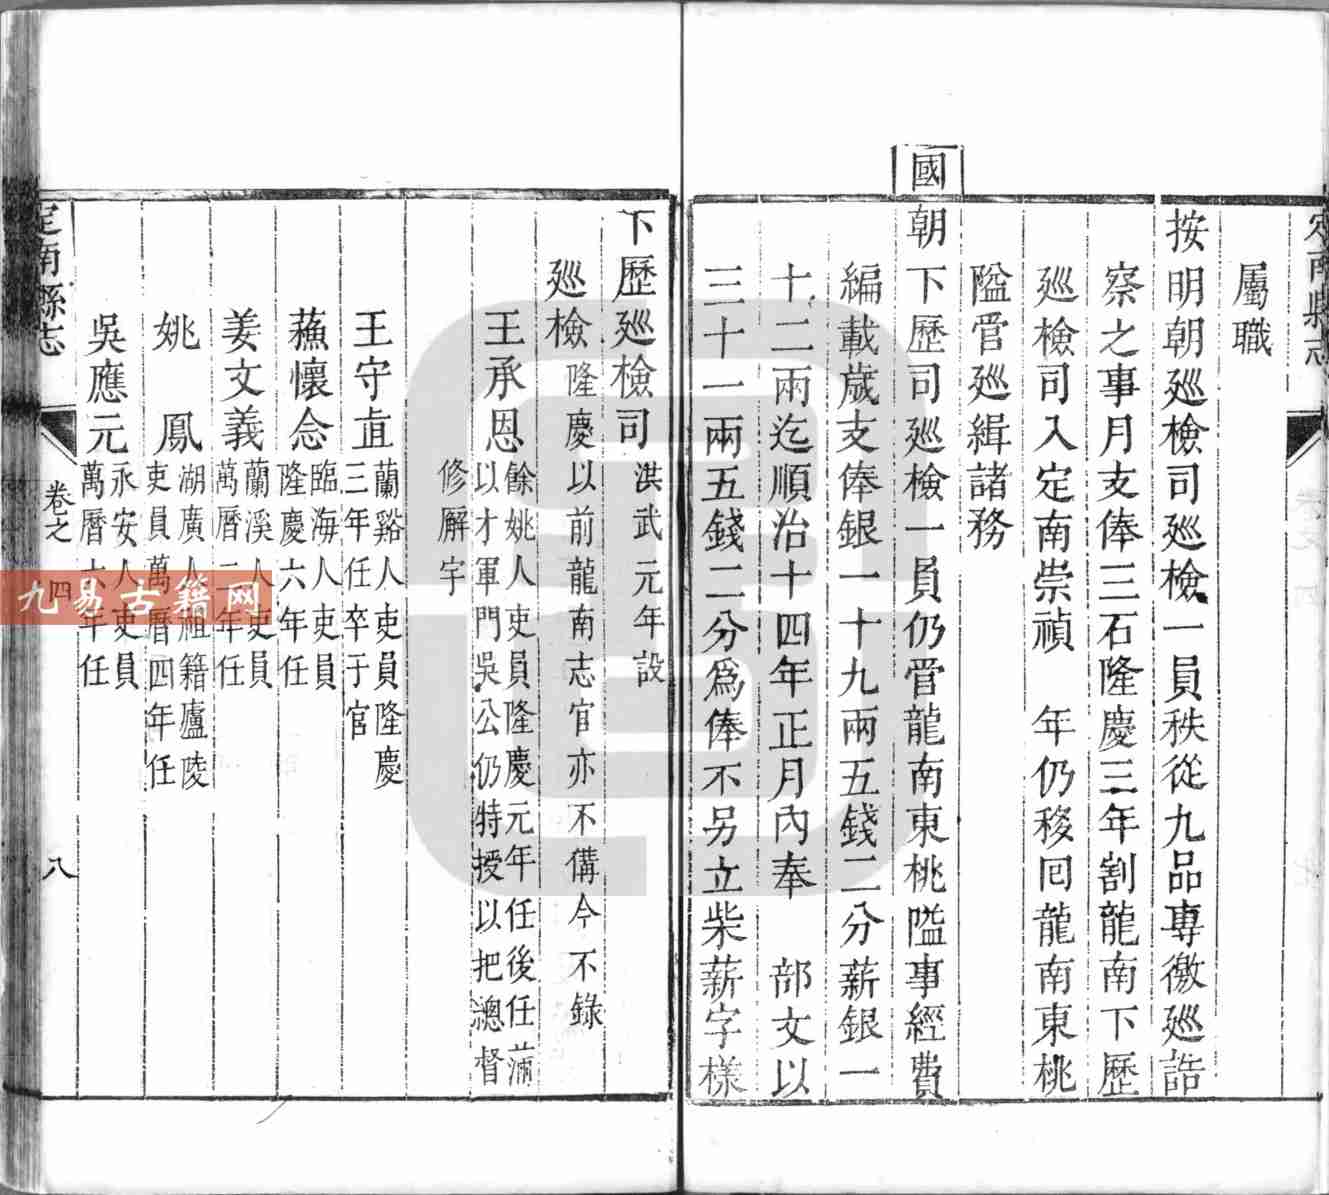 定南縣志
屬職
按明朝廵檢司廵檢一員秩從九品專徼廵詰
察之事月支俸三石隆慶三年割龍南下歷
廵檢司入定南崇禎 年仍移囘龍南東桃
隘管廵緝諸務
國朝下歷司廵檢一員仍管龍南東桃隘事經費
編載歲支俸銀一十九兩五錢二分薪銀一
十二兩迄順治十四年正月內奉 部文以
三十一兩五錢二分爲俸不另立柴薪字樣
下歷廵檢司 洪武元年設
廵檢 隆慶以前龍南志官亦不備今不錄
王承恩 餘姚人吏員隆慶元年任後任蒲
以才軍門吳公仍特授以把總督
修廨宇
王守直 蘭谿人吏員隆慶
三年任卒于官
蘓懷念 臨海人吏員
隆慶六年任
姜文義 蘭溪人吏員
萬曆二年任
姚鳳 湖廣人祖籍廬陵
吏員萬曆四年任
吳應元 永安人吏員
萬曆六年任
定南縣志 卷之四 八
九易古籍网